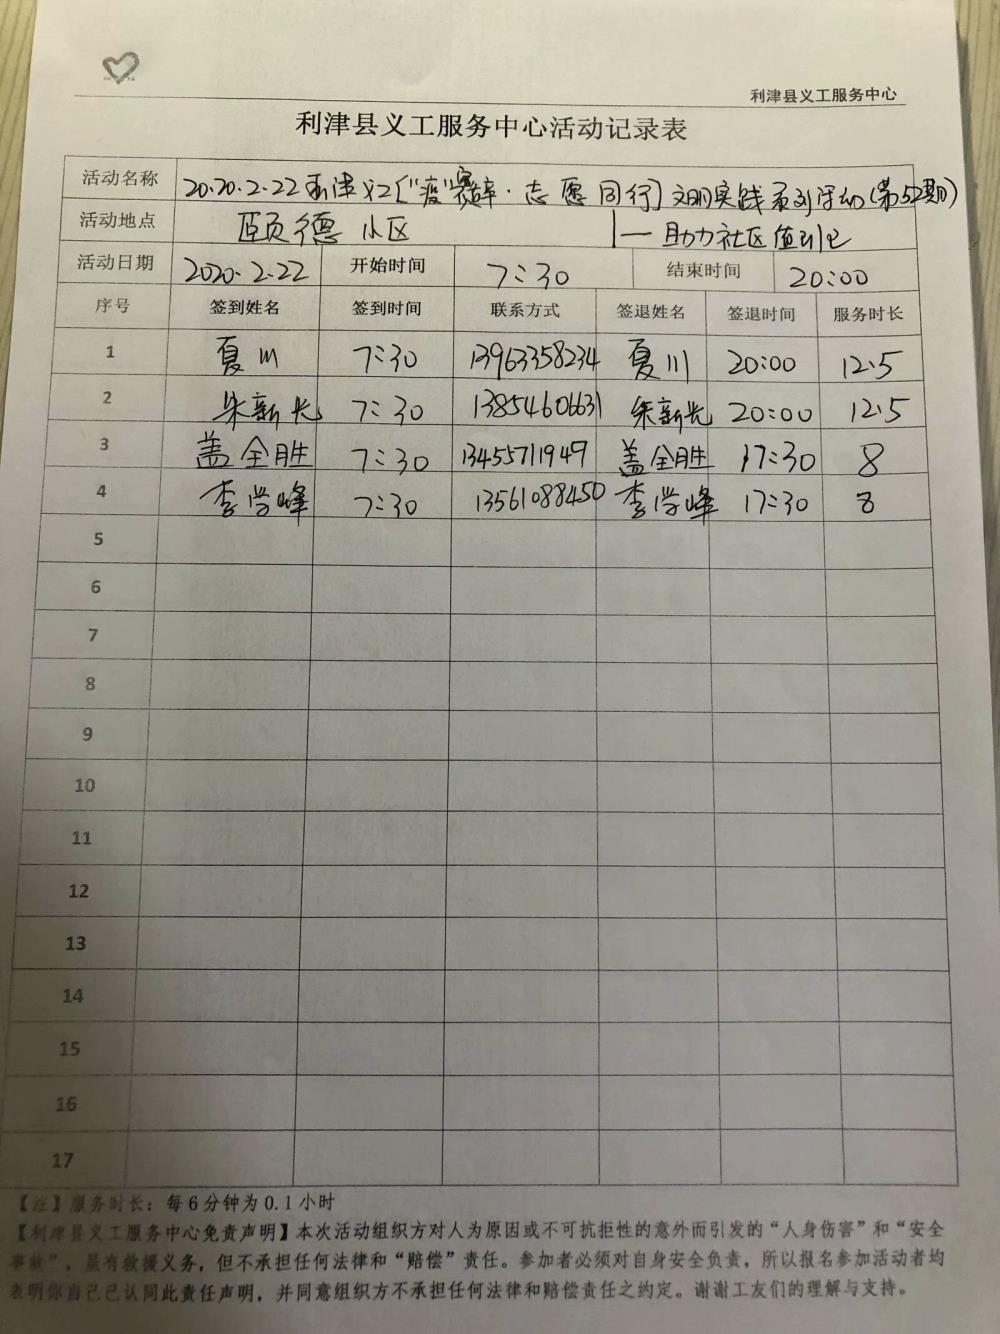 利津县义工服务中心
利津县义工服务中心活动记录表
活动名称 2020.2.22利津义工["疫"赛辞·志愿同行]文明实践系列活动(第52期)
活动地点 颐德小区 |—助力社区值班
活动日期 2020.2.22 开始时间 7:30 结束时间 20:00
序号 签到姓名 签到时间 联系方式 签退姓名 签退时间 服务时长
1 夏川 7:30 13963358234 夏川 20:00 12.5
2 朱新长 7:30 13854606631 朱新长 20:00 12.5
3 盖全胜 7:30 13455711949 盖全胜 17:30 8
4 李学峰 7:30 13561088450 李学峰 17:30 8
5
6
7
8
9
10
11
12
13
14
15
16
17
【注】服务时长：每6分钟为0.1小时
【利津县义工服务中心免责声明】本次活动组织方对人为原因或不可抗拒性的意外而引发的“人身伤害”和“安全
事故”，虽有救援义务，但不承担任何法律和“赔偿”责任。参加者必须对自身安全负责，所以报名参加活动者均
表明你自己已认同此责任声明，并同意组织方不承担任何法律和赔偿责任之约定。谢谢工友们的理解与支持。